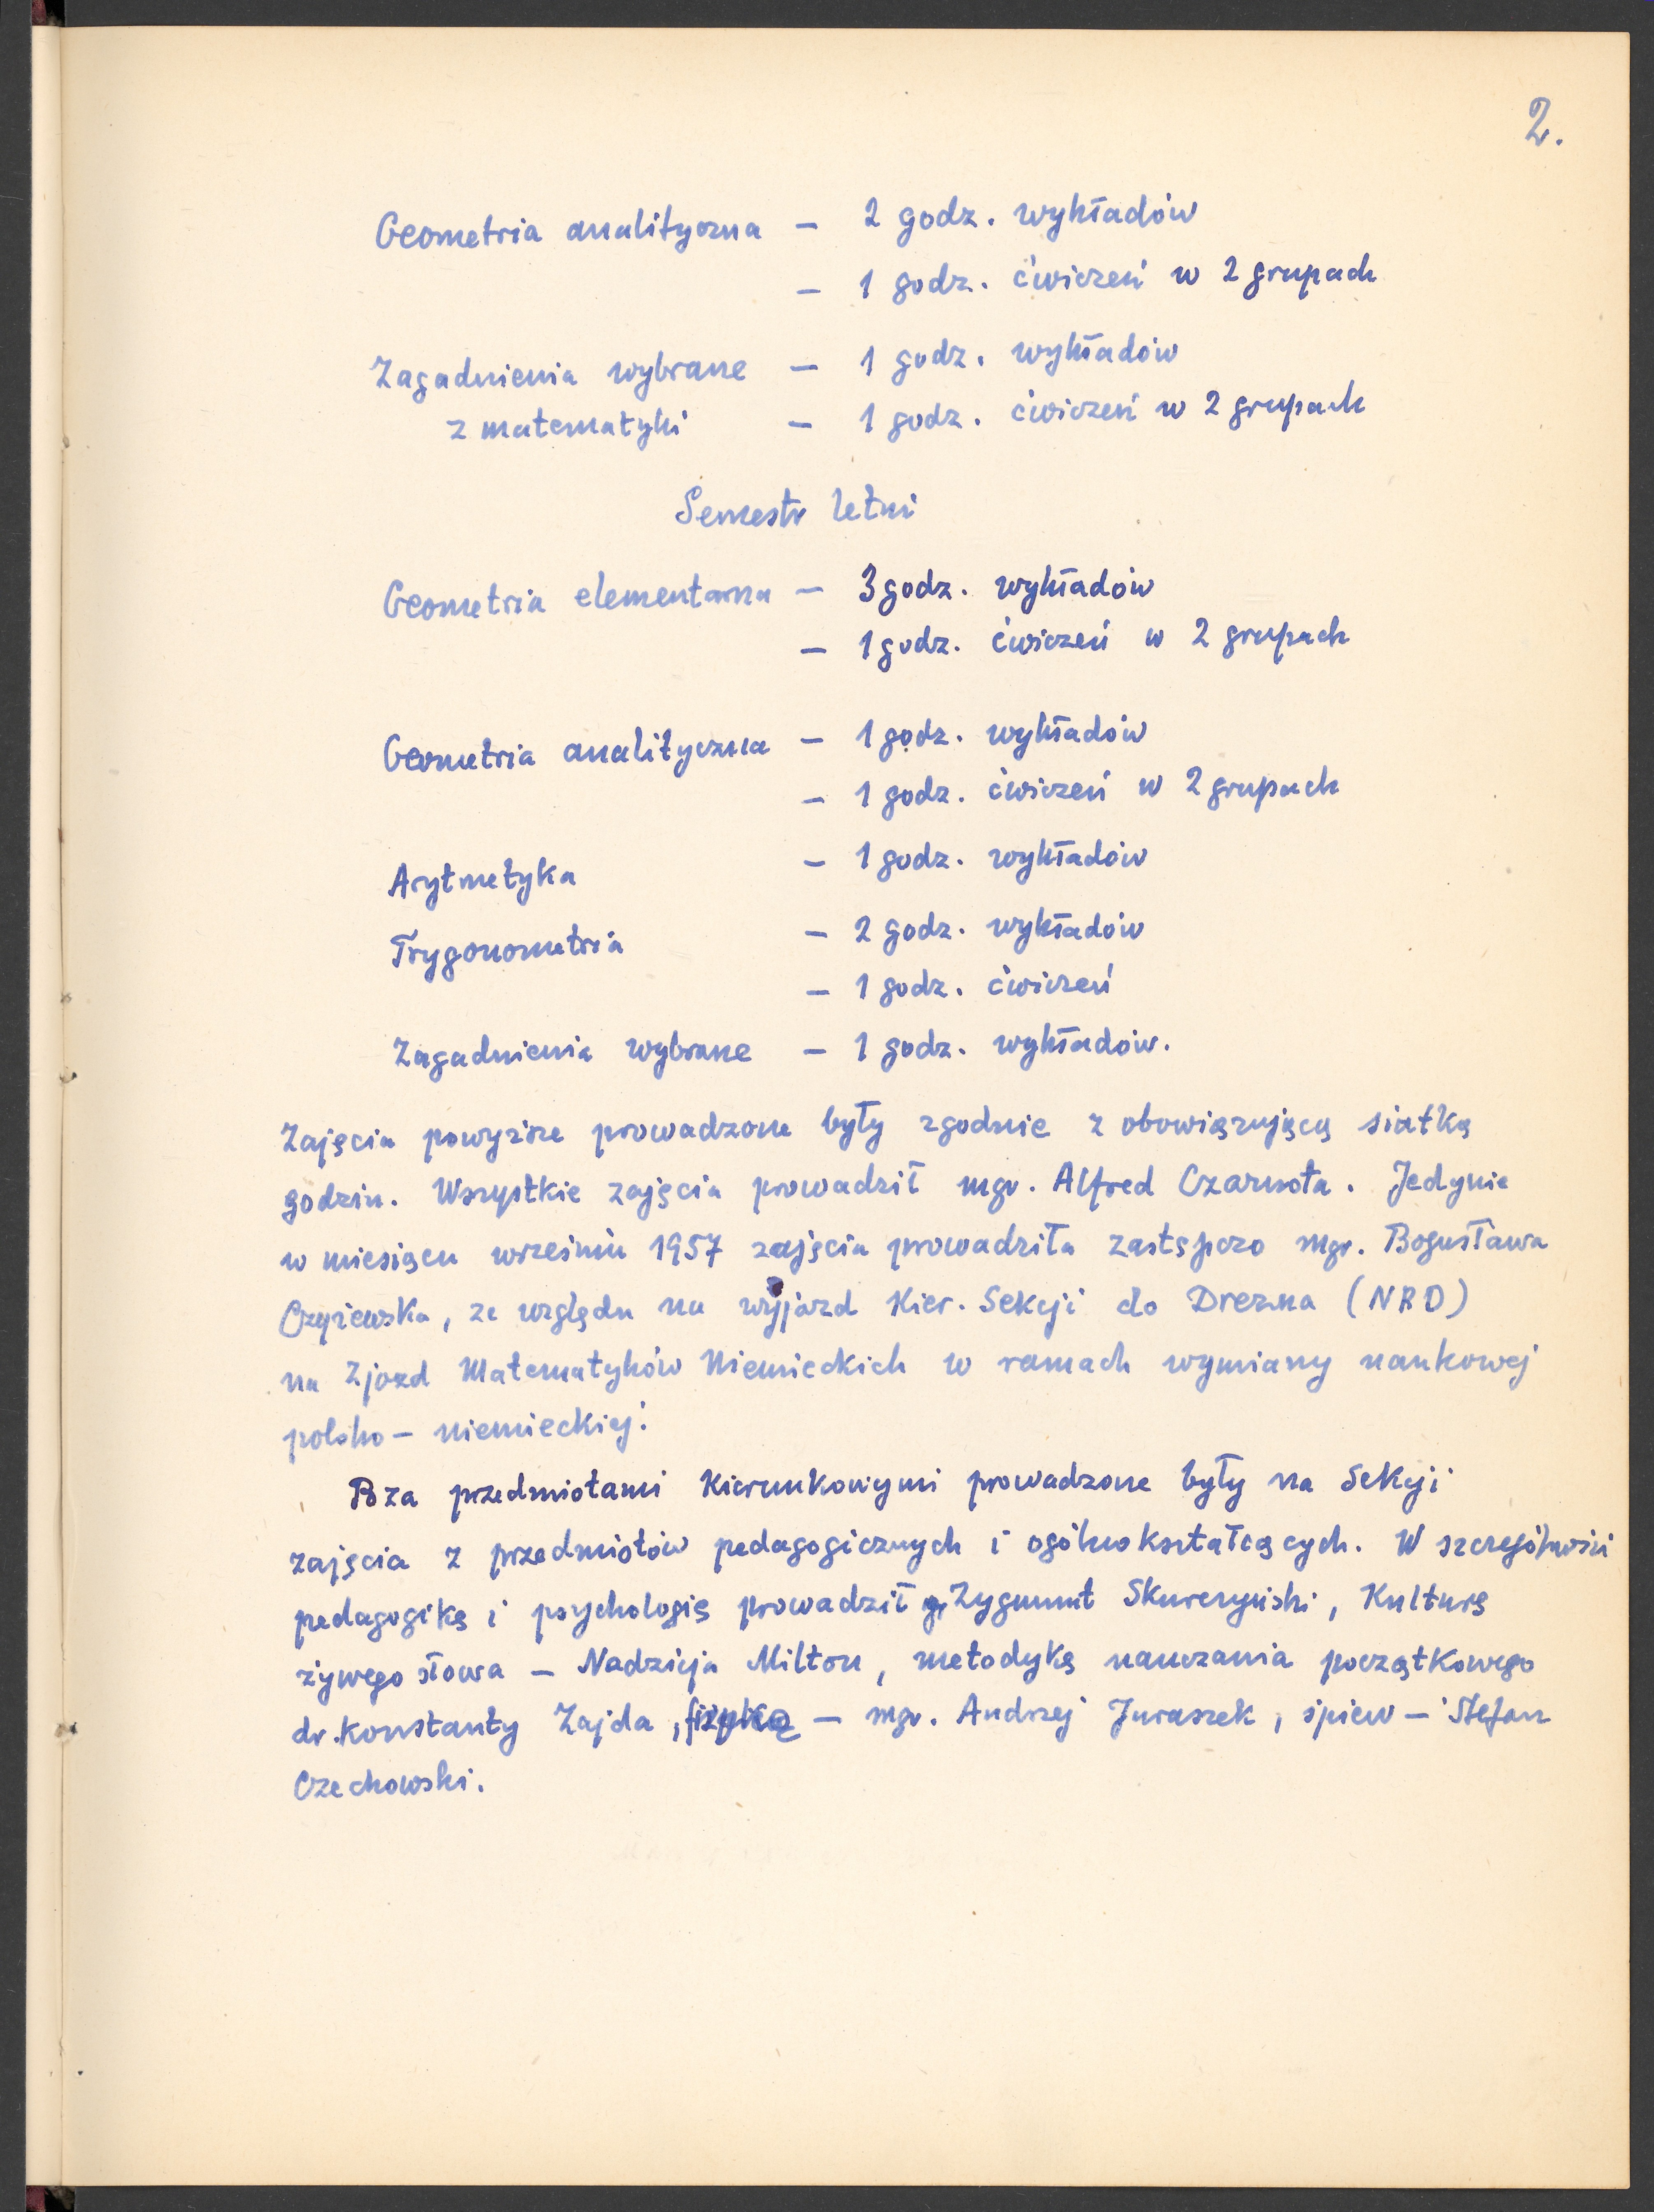 2.
Geometria analityczna – 2 godz. wykładów
– 1 godz. ćwiczeń w 2 grupach
Zagadnienia wybrane – 1 godz. wykładów
z matematyki – 1 godz. ćwiczeń w 2 grupach
Semestr letni
Geometria elementarna – 3 godz. wykładów
– 1 godz. ćwiczeń w 2 grupach
Geometria analityczna – 1 godz. wykładów
– 1 godz. ćwiczeń w 2 grupach
Arytmetyka – 1 godz. wykładów
Trygonometria – 2 godz. wykładów
– 1 godz. ćwiczeń
Zagadnienia wybrane – 1 godz. wykładów.
Zajęcia powyższe prowadzone były zgodnie z obowiązującą siatką
godzin. Wszystkie zajęcia prowadził mgr. Alfred Czarnota. Jedynie
w miesiącu wrześniu 1957 zajęcia prowadziła zastępczo mgr. Bogusława
Czyżewska, ze względu na wyjazd Kier. Sekcji do Drezna (NRD)
na Zjazd Matematyków Niemieckich w ramach wymiany naukowej
polsko – niemieckiej.
Poza przedmiotami kierunkowymi prowadzone były na Sekcji
zajęcia z przedmiotów pedagogicznych i ogólnokształcących. W szczególności
pedagogikę i psychologię prowadził Zygmunt Skurczyński, Kulturę
żywego słowa – Nadzieja Milton, metodykę nauczania początkowego
dr. Konstanty Zajda, fizykę – mgr. Andrzej Juraszek, śpiew – Stefan
Czechowski.